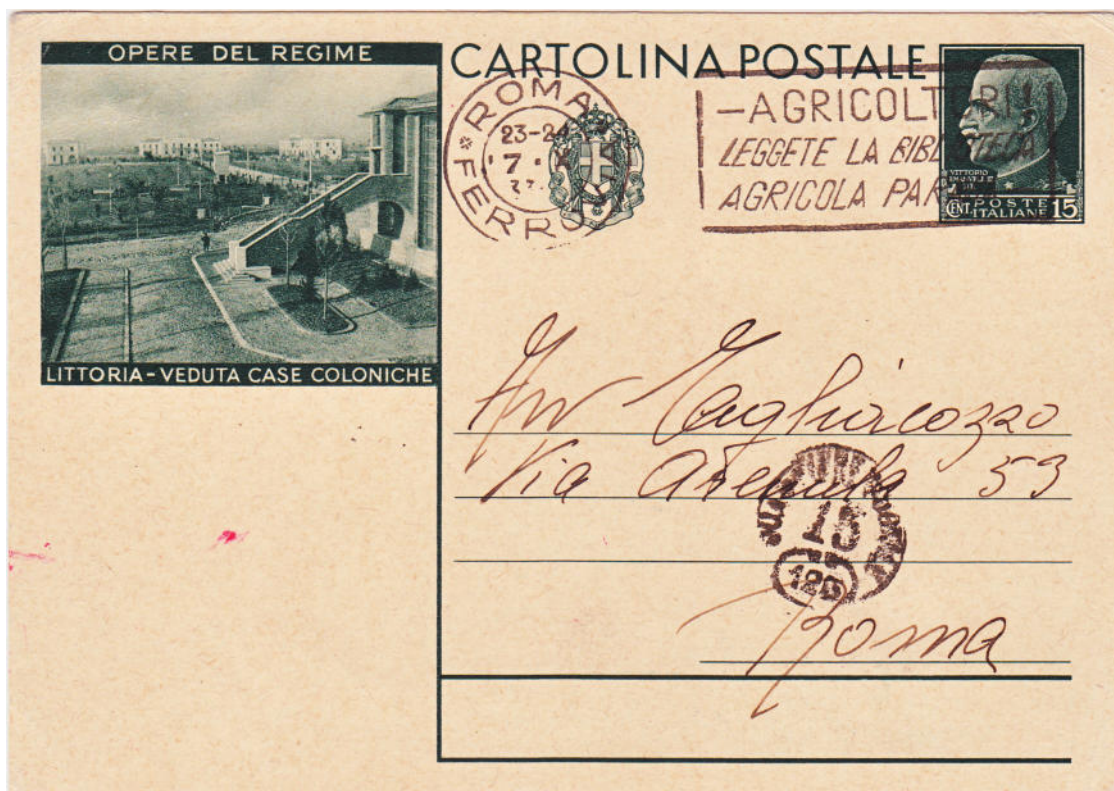 OPERE DEL REGIME
LITTORIA - VEDUTA CASE COLONICHE
CARTOLINA POSTALE
ROMA
23-24
7
FERROVIA
-AGRICOLTORI!
LEGGETE LA BIBLIOTECA
AGRICOLA
VITTORIO
EMANUELE
III
CENT. POSTE ITALIANE 15
Avv Tagliacozzo
Via Arenula 53
15
Roma